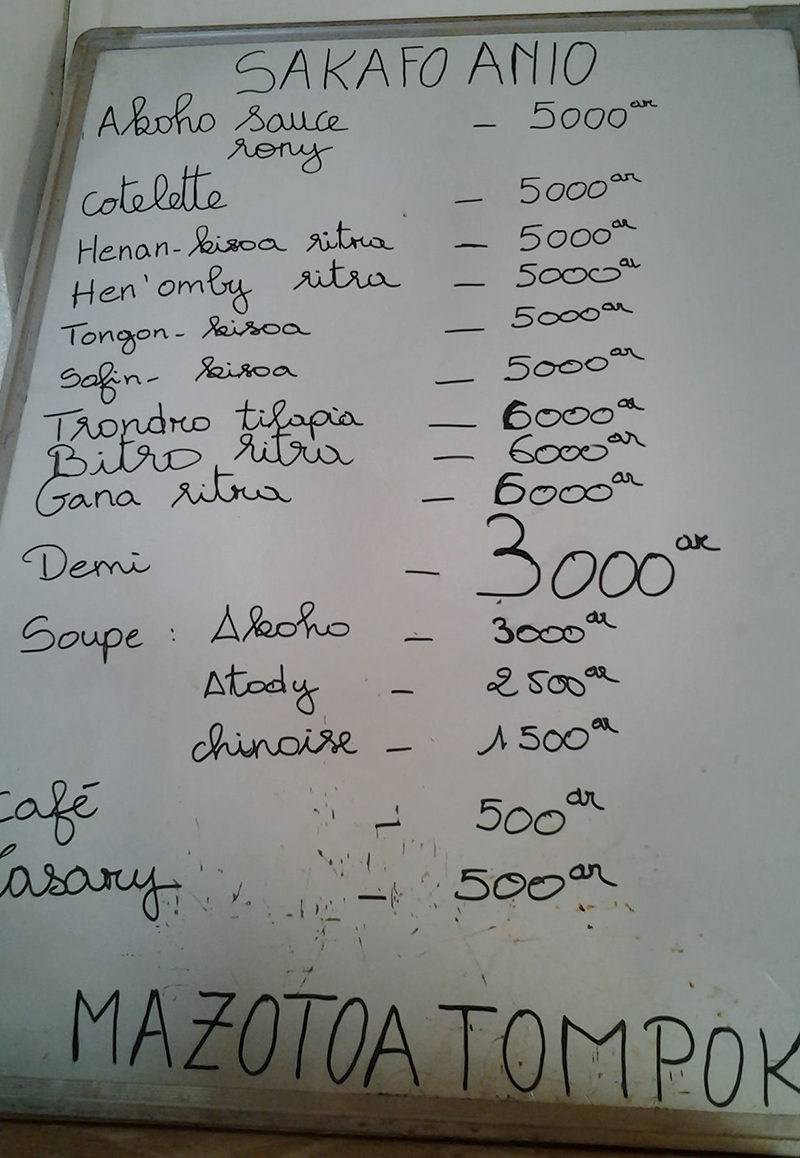 SAKAFO ANIO
Akoho sauce - 5000 ar
rony
cotelette - 5000 ar
Henan-kisoa ritra - 5000 ar
Hen'omby ritra - 5000 ar
Tongon-kisoa - 5000 ar
Safin-kisoa - 5000 ar
Trondro tilapia - 6000 ar
Bitro ritra - 6000 ar
Gana ritra - 6000 ar
Demi - 3000 ar
Soupe : Akoho - 3000 ar
Atody - 2500 ar
chinoise - 1500 ar
café - 500 ar
lasary - 500 ar
MAZOTOA TOMPOK